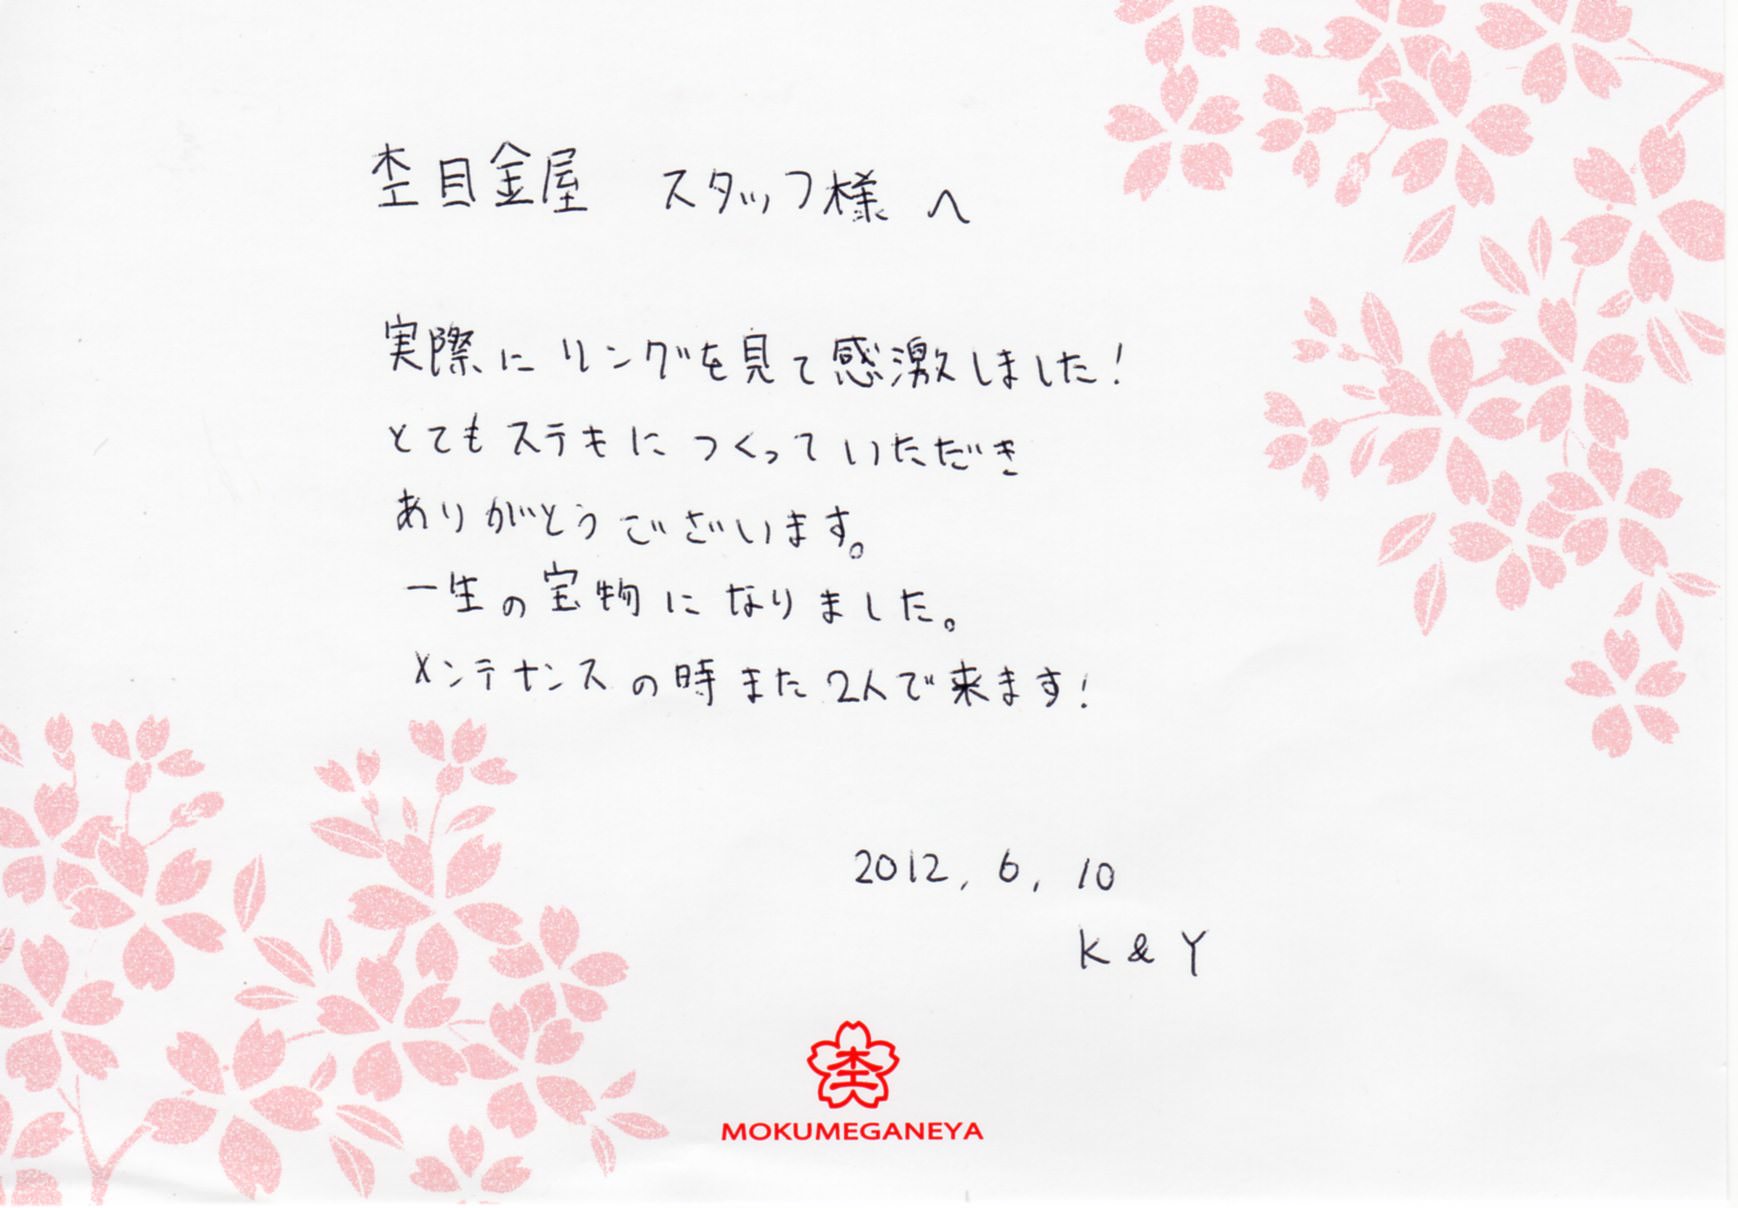 杢目金屋 スタッフ様 へ
実際に リングを見て感激しました!
とてもステキに つくって いただき
ありがとうございます。
一生の宝物になりました。
メンテナンスの時また2人で来ます!
2012, 6, 10
K & Y
杢
MOKUMEGANEYA